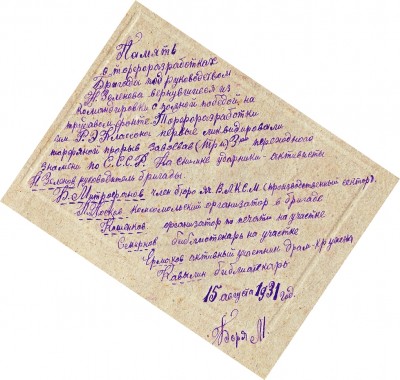 Память
о торфоразработках
Бригада под руководством
Н. Зеленова вернувшиеся из
командировки с полной победой на
трудовом фронте. Торфоразработки
им. Р. Э. Классона первые ликвидировали
торфяной прорыв завоевав (три) 3 переходного
знамени по С.С.С.Р. На снимке ударники-активисты
Н. Зеленов руководитель бригады.
Б. Митрофанов член бюро ВЛКСМ (производственный сектор).
комсомольский организатор в бригаде
организатор по печати на участке
библиотекарь на участке
Ермаков активный участник драм-кружка
библиотекарь
15 августа 1931 год.
Боря М.